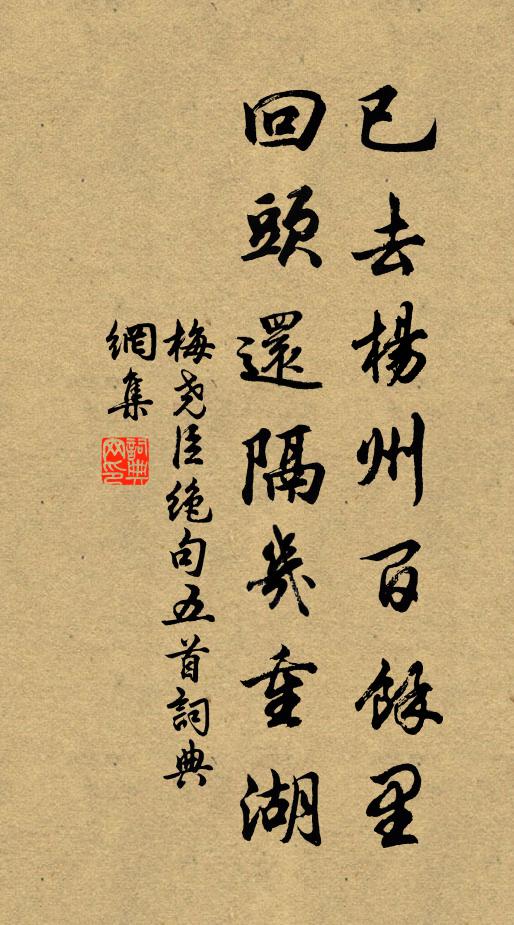 已去楊州百餘里
回頭還隔幾重湖
梅尭臣绝句五首詞典
網集
詞典網印